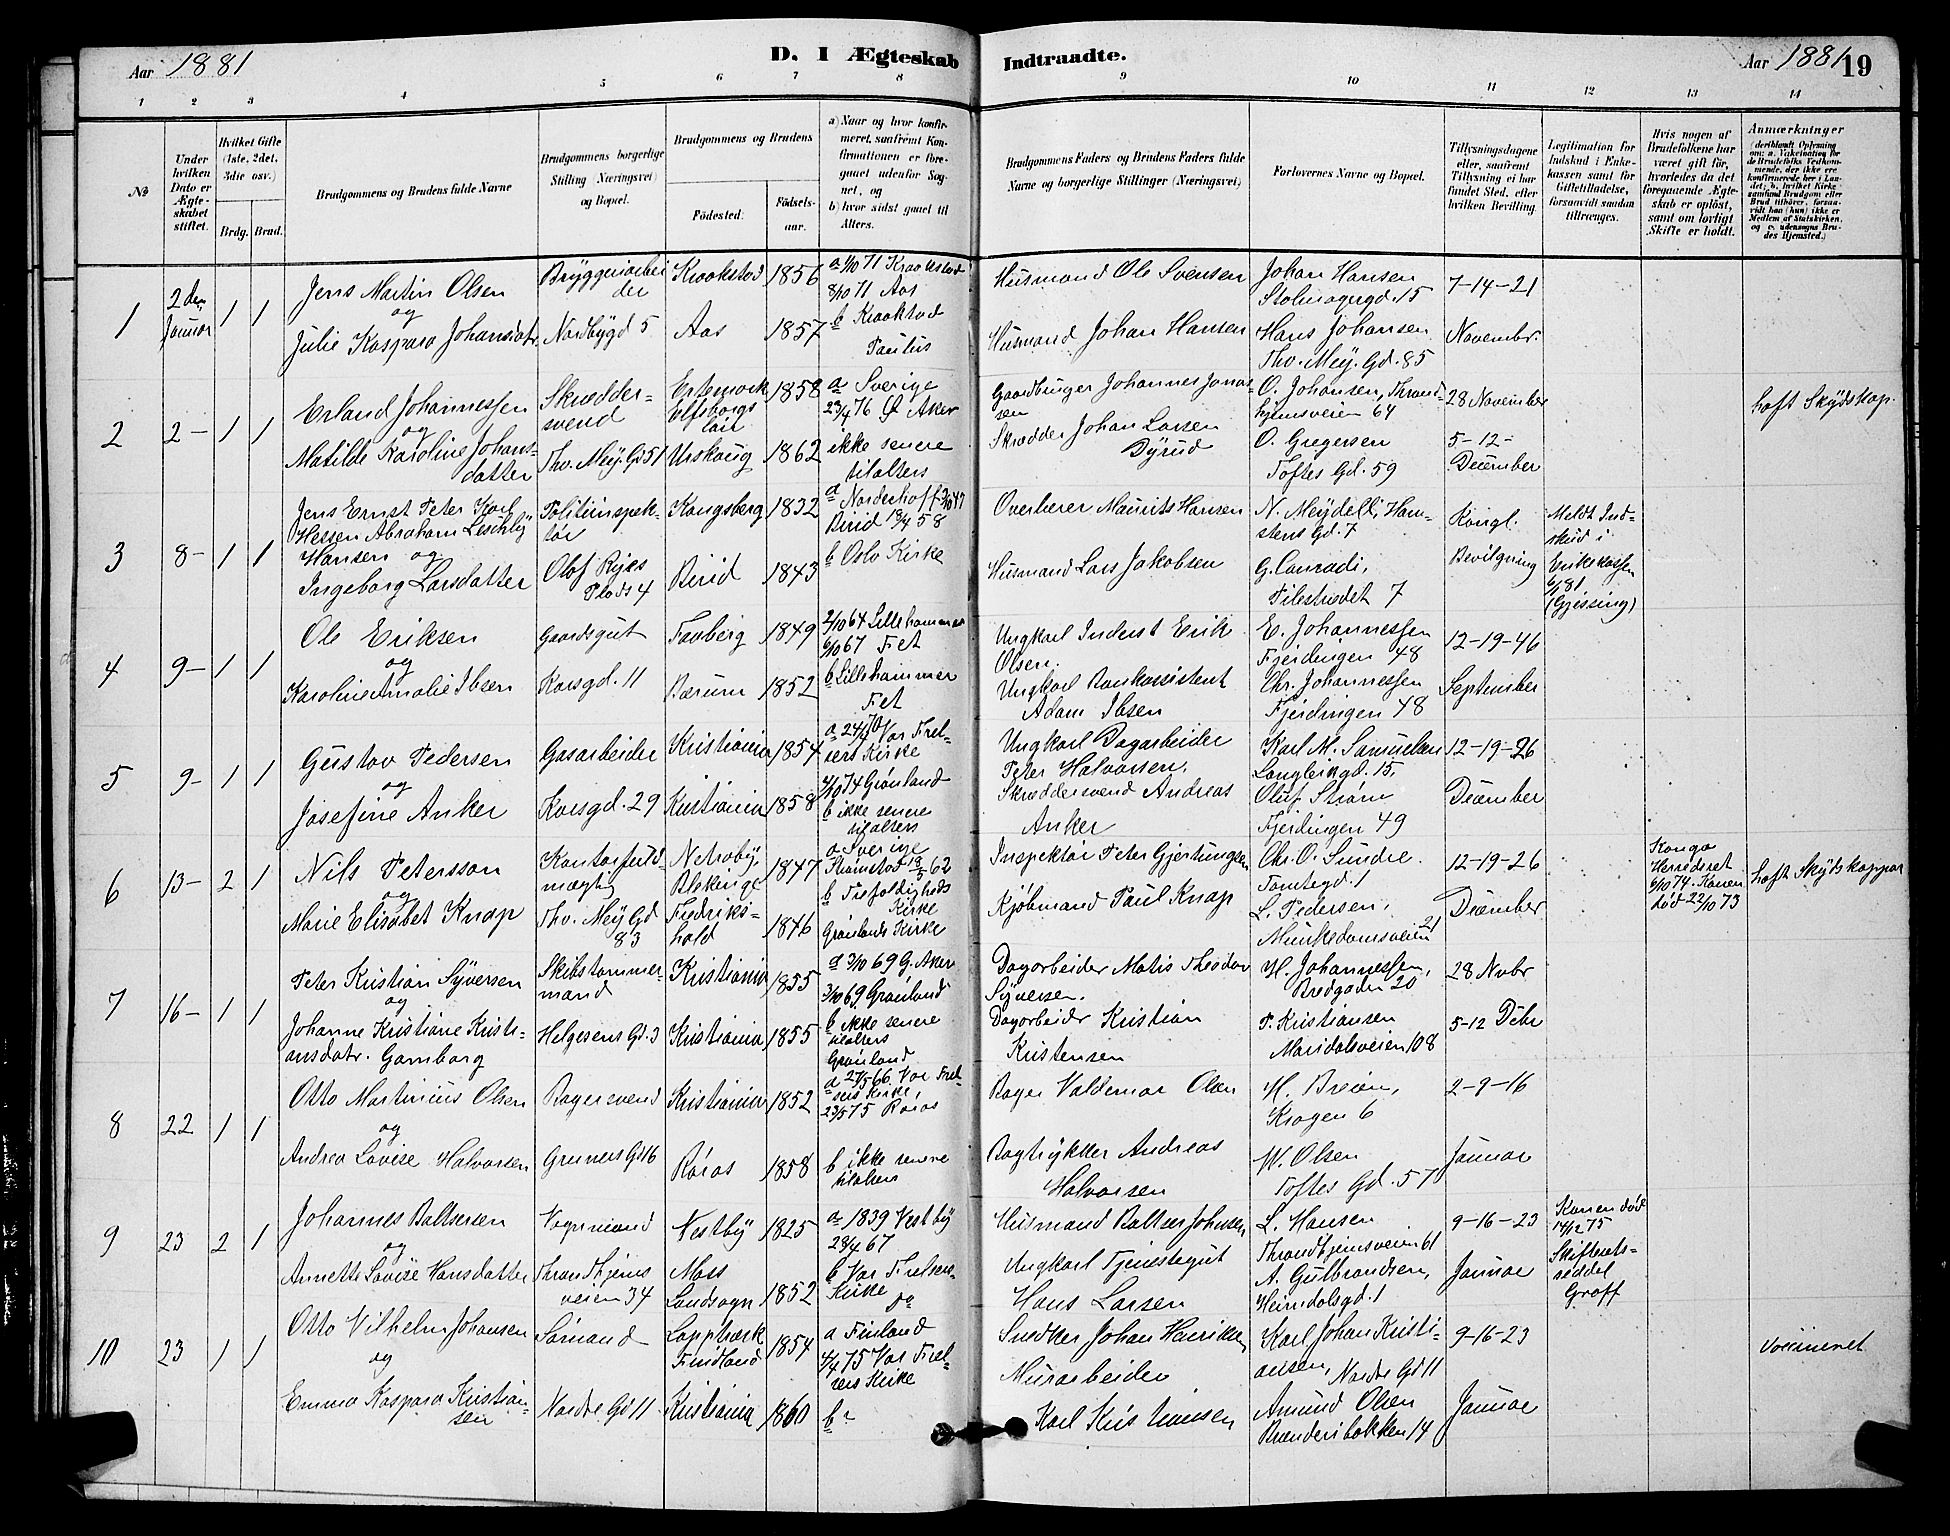 Aar 1881
D. I Ægteskab Indtraadte.
Aar 1881 19
1 2 3 4 5 6 7 8 9 10 11 12 13 14
№
Under hvilken Dato er Ægteskabet stiftet.
Hvilket Gifte (1ste, 2det, 3die osv.)
Brdg. Brud.
Brudgommens og Brudens fulde Navne
Brudgommens borgerlige Stilling (Næringsvei) og Bopæl.
Brudgommens og Brudens
Fødested.
Fødselsaar.
a) Naar og hvor konfirmeret, saafremt Konfirmationen er foregaaet udenfor Sognet, og
b) hvor sidst gaaet til Alters.
Brudgommens Faders og Brudens Faders fulde Navne og borgerlige Stillinger (Næringsvei)
Forlovernes Navne og Bopæl.
Tillysningsdagene eller, saafremt Tillysning ei har fundet Sted, efter hvilken Bevilling.
Legitimation for Indskud i Enkekassen samt for Giftetilladelse, forsaavidt saadan tiltrænges.
Hvis nogen af Brudefolkene har været gift før, hvorledes da det foregaaende Ægteskab er opløst, samt om lovligt Skifte er holdt.
Anmærkninger
1 2 den Januar 1 1
Jens Martin Olsen
og
Julie Kaspara Johansdatr.
Bryggeriarbeider
Nordbygd 5
Kraakstad 1856
Aas 1857
a 1/10 71 Kraakstad
8/10 71 Aas
b Kraakstad
Paulus
Husmand Ole Svensen
Husmand Johan Hansen
Johan Hansen
Stolmagergd. 15
Hans Johansen
Thv. Mey. Gd. 85
7-14-21
Novembr.
2 2 - 1 1
Erland Johannessen
og
Matilde Karoline Johansdatter
Skræddersvend
Thv. Mey. Gd 51
Elfsborgs län 1858
Urskoug 1862
a Sverige
23/4 76 Ø Aker
ikke senere
tilalters
Gaardbruger Johannes Jonassen
Skrædder Johan Larsen
Dyrud
O. Johansen, Throndhjemsveien 64
O. Gregersen
Toftes Gd. 59
28 November
5-12-
December
haft Skydskop.
3 8 - 1 1
Jens Ernst Peter Karl
Hessen Abraham
Hansen og
Ingeborg Larsdatter
Politiinspektør
Olaf Ryes
Plads 4
Kongsberg 1832
Birid 1843
a Norderhoff
Birid 18/4 58
b Oslo Kirke
Overlærer Maurits Hansen
Husmand Lars Jakobsen
N. Meydell, Hamstens Gd. 7
G. Conradi,
Pilestrædet 7
Kongl.
Bevilgning
Meldt Indskud i
Enkekassen
6/1 81
(Gjessing)
4 9 - 1 1
Ole Eriksen
og
Karoline Amalie Ibsen
Gaardsgut
Korsgd. 11
Faaberg 1849
Bærum 1852
2/10 64 Lillehammer
6/10 67 Fet
b Lillehammer
Fet
Ungkarl Inderst Erik
Olsen.
Ungkarl Bankassistent
Adam Ibsen
E. Johannessen
Fjerdingen 48
Chr. Johannessen
Fjerdingen 48
12-19-46
September
5 9 - 1 1
Gustav Pedersen
og
Josefine Anker
Gasarbeider
Korsgd. 29
Kristiania 1854
Kristiania 1858
a 24/4 70 Vor Frelsers Kirke
4/10 74 Grønland
b ikke senere
tilalters
Ungkarl Dagarbeider
Peter Halvorsen.
Skræddersvend Andreas
Anker
Karl M. Samuelsen
Langleikgd. 15,
Oluf Strøm
Fjerdingen 49
12-19-26
December
6 13 - 2 1
Nils Petersson
og
Marie Elisabet Knap
Kontorfuldmægtig
Thv. Mey Gd
83
Netraby,
Blekinge 1847
Fredrikshald 1846
a Sverige
Strømstad 18/5 62
b Trefoldigheds
Kirke
Grønlands Kirke
Inspektør Peter Gjertungsen
Kjøbmand Paul Knap
Chr. O. Sundre.
Tomtegd. 1
L. Pedersen,
Munkedamsveien 21
12-19-26
December
Konga
Herredsret
6/10 74. Konen
død 22/10 73
haft Skydskopper
7 16 - 1 1
Peter Kristian Syversen
og
Johanne Kristiane Kristiansdatr. Gamborg
Skibstømmermand
Helgesens Gd. 3
Kristiania 1855
Kristiania 1855
a 3/10 69 G. Aker
3/10 69 Grønland
b ikke senere
tilalters
Grønland
Dagarbeider Matis Theodor
Syversen.
Dagarbeidr Kristian
Kristensen
H. Johannessen,
Bredgaden 20
P. Kristiansen
Maridalsveien 108
28 Novbr
5-12 Debr
8 22 1 1
Otto Martinius Olsen
og
Andrea Lovise Halvorsen
Bagersvend
Gruners Gd 16
Kristiania 1852
Røros 1858
a 27/5 66 Vor Frelsers Kirke,
23/5 75 Røros
b ikke senere
tilalters
Bager Valdemar Olsen
Bogtrykker Andreas
Halvorsen
H. Breien,
Kragen 6
W. Olsen
Toftes Gd. 57
2-9-16
Januar
9 23 2 1
Johannes Baltsersen
og
Annette Lovise Hansdatter
Vognmand
Throndhjemsveien 34
Vestby 1825
Moss
Landsogn 1852
a 1839 Vestby
28/4 67
b Vor Frelsers
Kirke
Do
Husmand Baltser Johnsen
Ungkarl Tjenestegut
Hans Larsen
L. Hansen
Throndhjemsveien 61
A. Gulbrandsen,
Heimdalsgd. 1
9-16-23
Januar
Konen død
14/12 75
Skifteretsseddel
Graff
10 23 1 1
Otto Vilhelm Johansen
og
Emma Kaspara Kristiansen
Sømand
Nordre Gd 11
Lappträsk
Findland 1854
Kristiania 1860
a Finland
4/4 75 Vor Frelsers Kirke
b
Snedker Johan Henriksen
Murarbeider
Karl Kristiansen
Karl Johan Kristiansen, Nordre Gd 11
Amund Olsen
Brænderibakken 14
9-16-23
Januar
vaccineret